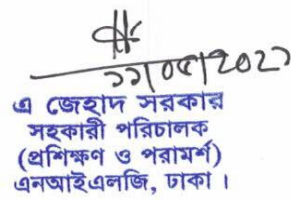 ২২/০৫/2022
এ জেহাদ সরকার
সহকারী পরিচালক
(প্রশিক্ষণ ও পরামর্শ)
এনআইএলজি, ঢাকা।